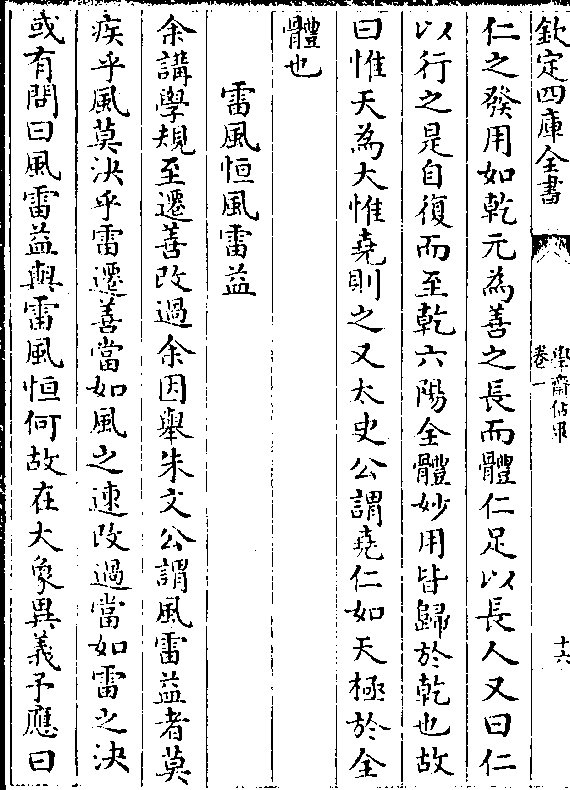 欽定四庫全書
學齋佔畢
卷一
十六
仁之發用如乾元為善之長而體仁足以長人又曰仁
以行之是自復而至乾六陽全體妙用皆歸於乾也故
曰惟天為大惟堯則之又太史公謂堯仁如天極於全
體也
雷風恒風雷益
余講學規至遷善改過余因舉朱文公謂風雷益者莫
疾乎風莫決乎雷遷善當如風之速改過當如雷之決
或有問曰風雷益與雷風恒何故在大象異義予應曰